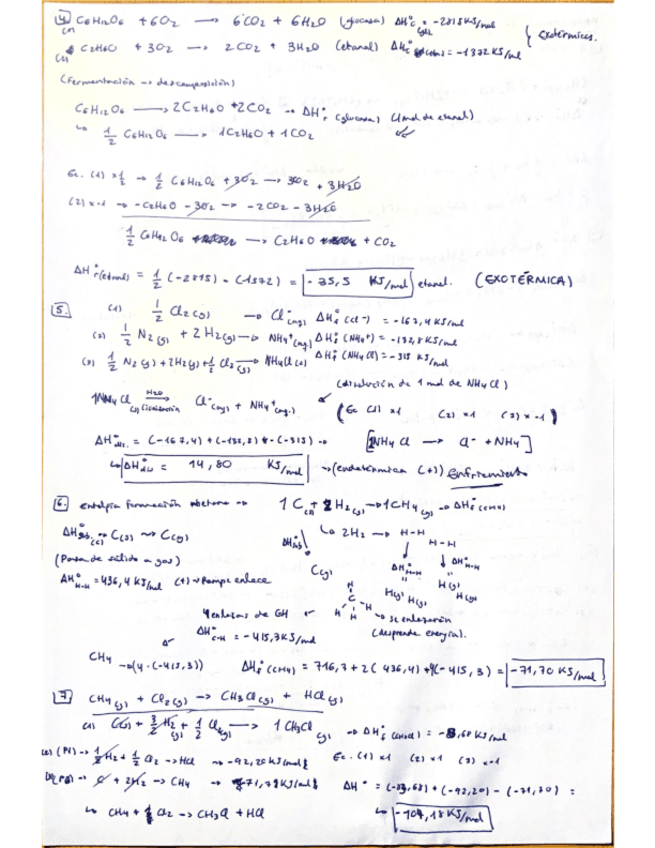 4. C6H12O6 + 6O2 → 6CO2 + 6H2O (glucosa) ΔHc° = -2815 KJ/mol
(1)
C2H6O + 3O2 → 2CO2 + 3H2O (etanol) ΔHc° = -1372 KJ/mol } exotérmicas.
(2)
(Fermentación → descomposición)
C6H12O6 → 2C2H6O + 2CO2 → ΔH°r (glucosa) (1mol de etanol)
↳ 1/2 C6H12O6 → 1C2H6O + 1CO2
Ec. (1) × 1/2 → 1/2 C6H12O6 + 3O2 → 3CO2 + 3H2O
(2) × -1 → -C2H6O - 3O2 → -2CO2 - 3H2O
1/2 C6H12O6 → C2H6O + CO2
ΔH°r(etanol) = 1/2 (-2815) - (-1372) = -35,5 KJ/mol etanol. (EXOTÉRMICA)
5. (1) 1/2 Cl2(g) → Cl-(aq) ΔHf° (Cl-) = -167,4 KJ/mol
(2) 1/2 N2(g) + 2H2(g) → NH4+(aq) ΔHf° (NH4+) = -132,8 KJ/mol
(3) 1/2 N2(g) + 2H2(g) + 1/2 Cl2(g) → NH4Cl(s) ΔHf° (NH4Cl) = -315 KJ/mol
(disolución de 1 mol de NH4Cl)
1NH4Cl H2O → Cl-(aq) + NH4+(aq) (Ec (1) ×1 (2) ×1 (3) × -1)
ΔH°dis. = (-167,4) + (-132,8) - (-315) → [NH4Cl → Cl- + NH4]
↳ ΔH°dis = 14,80 KJ/mol → (endotérmica (+)) Enfriamiento
6. entalpía formación metano → 1C(s) + 2H2(g) → 1CH4(g) → ΔHf°(CH4)
ΔH°sub.(C) → C(s) → C(g) ΔHsub ↳ 2H2 → H-H H-H
(Pasa de sólido a gas) C(g) ΔH°H-H ΔH°H-H
ΔH°H-H = 436,4 KJ/mol (+) → Rompe enlace H(g) H(g) H(g) H(g)
4 enlaces de CH → se enlazarán
ΔH°C-H = -415,3 KJ/mol (desprende energía).
CH4 → (4·(-415,3)) ΔHf°(CH4) = 716,7 + 2(436,4) + 4(-415,3) = -71,70 KJ/mol
7. CH4(g) + Cl2(g) → CH3Cl(g) + HCl(g)
(1) C(s) + 3/2 H2(g) + 1/2 Cl2(g) → 1CH3Cl(g) → ΔHf°
(2) 1/2 H2 + 1/2 Cl2 → HCl → -92,20 KJ/mol Ec. (1) ×1 (2) ×1 (3) × -1
C + 2H2 → CH4 → ΔH° = + (-92,20) - (-71,70) =
↳ CH4 + Cl2 → CH3Cl + HCl ↳ -104,18 KJ/mol